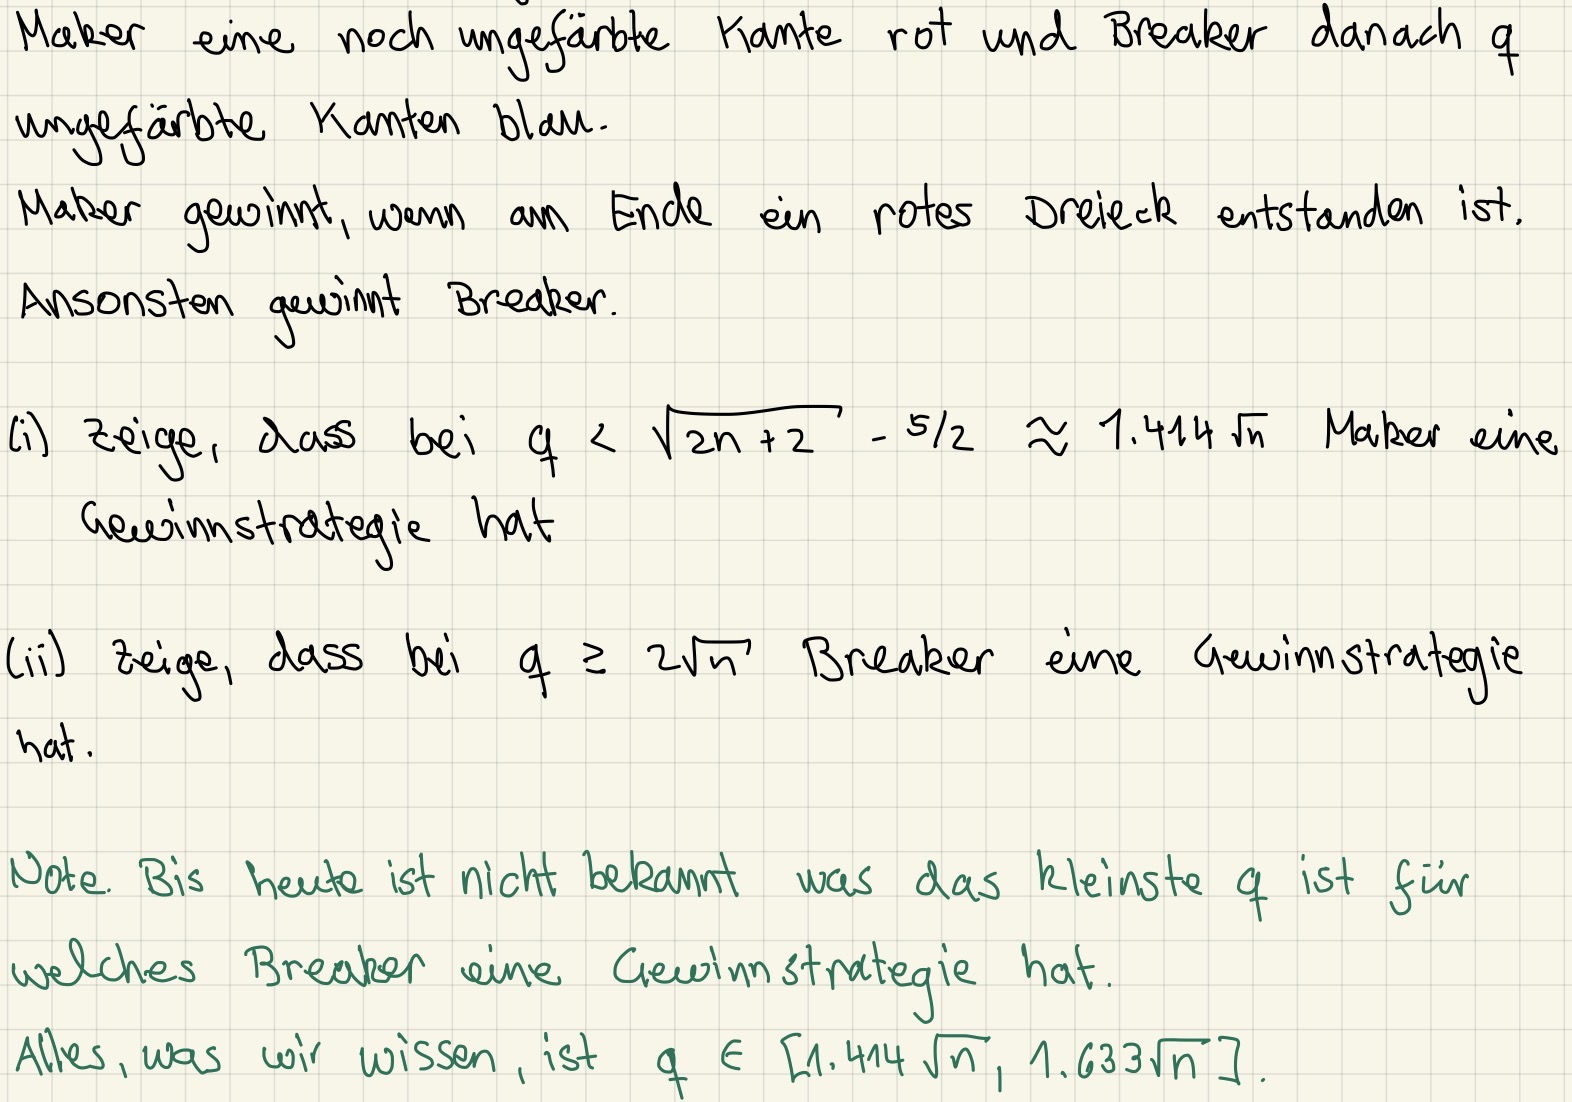 Maker eine noch ungefärbte Kante rot und Breaker danach q
ungefärbte Kanten blau.
Maker gewinnt, wenn am Ende ein rotes Dreieck entstanden ist.
Ansonsten gewinnt Breaker.
(i) Zeige, dass bei q < √(2n+2) - 5/2 ≈ 1.414 √n Maker eine
Gewinnstrategie hat
(ii) Zeige, dass bei q ≥ 2√n Breaker eine Gewinnstrategie
hat.
Note. Bis heute ist nicht bekannt was das kleinste q ist für
welches Breaker eine Gewinnstrategie hat.
Alles, was wir wissen, ist q ∈ [1.414 √n, 1.633 √n].